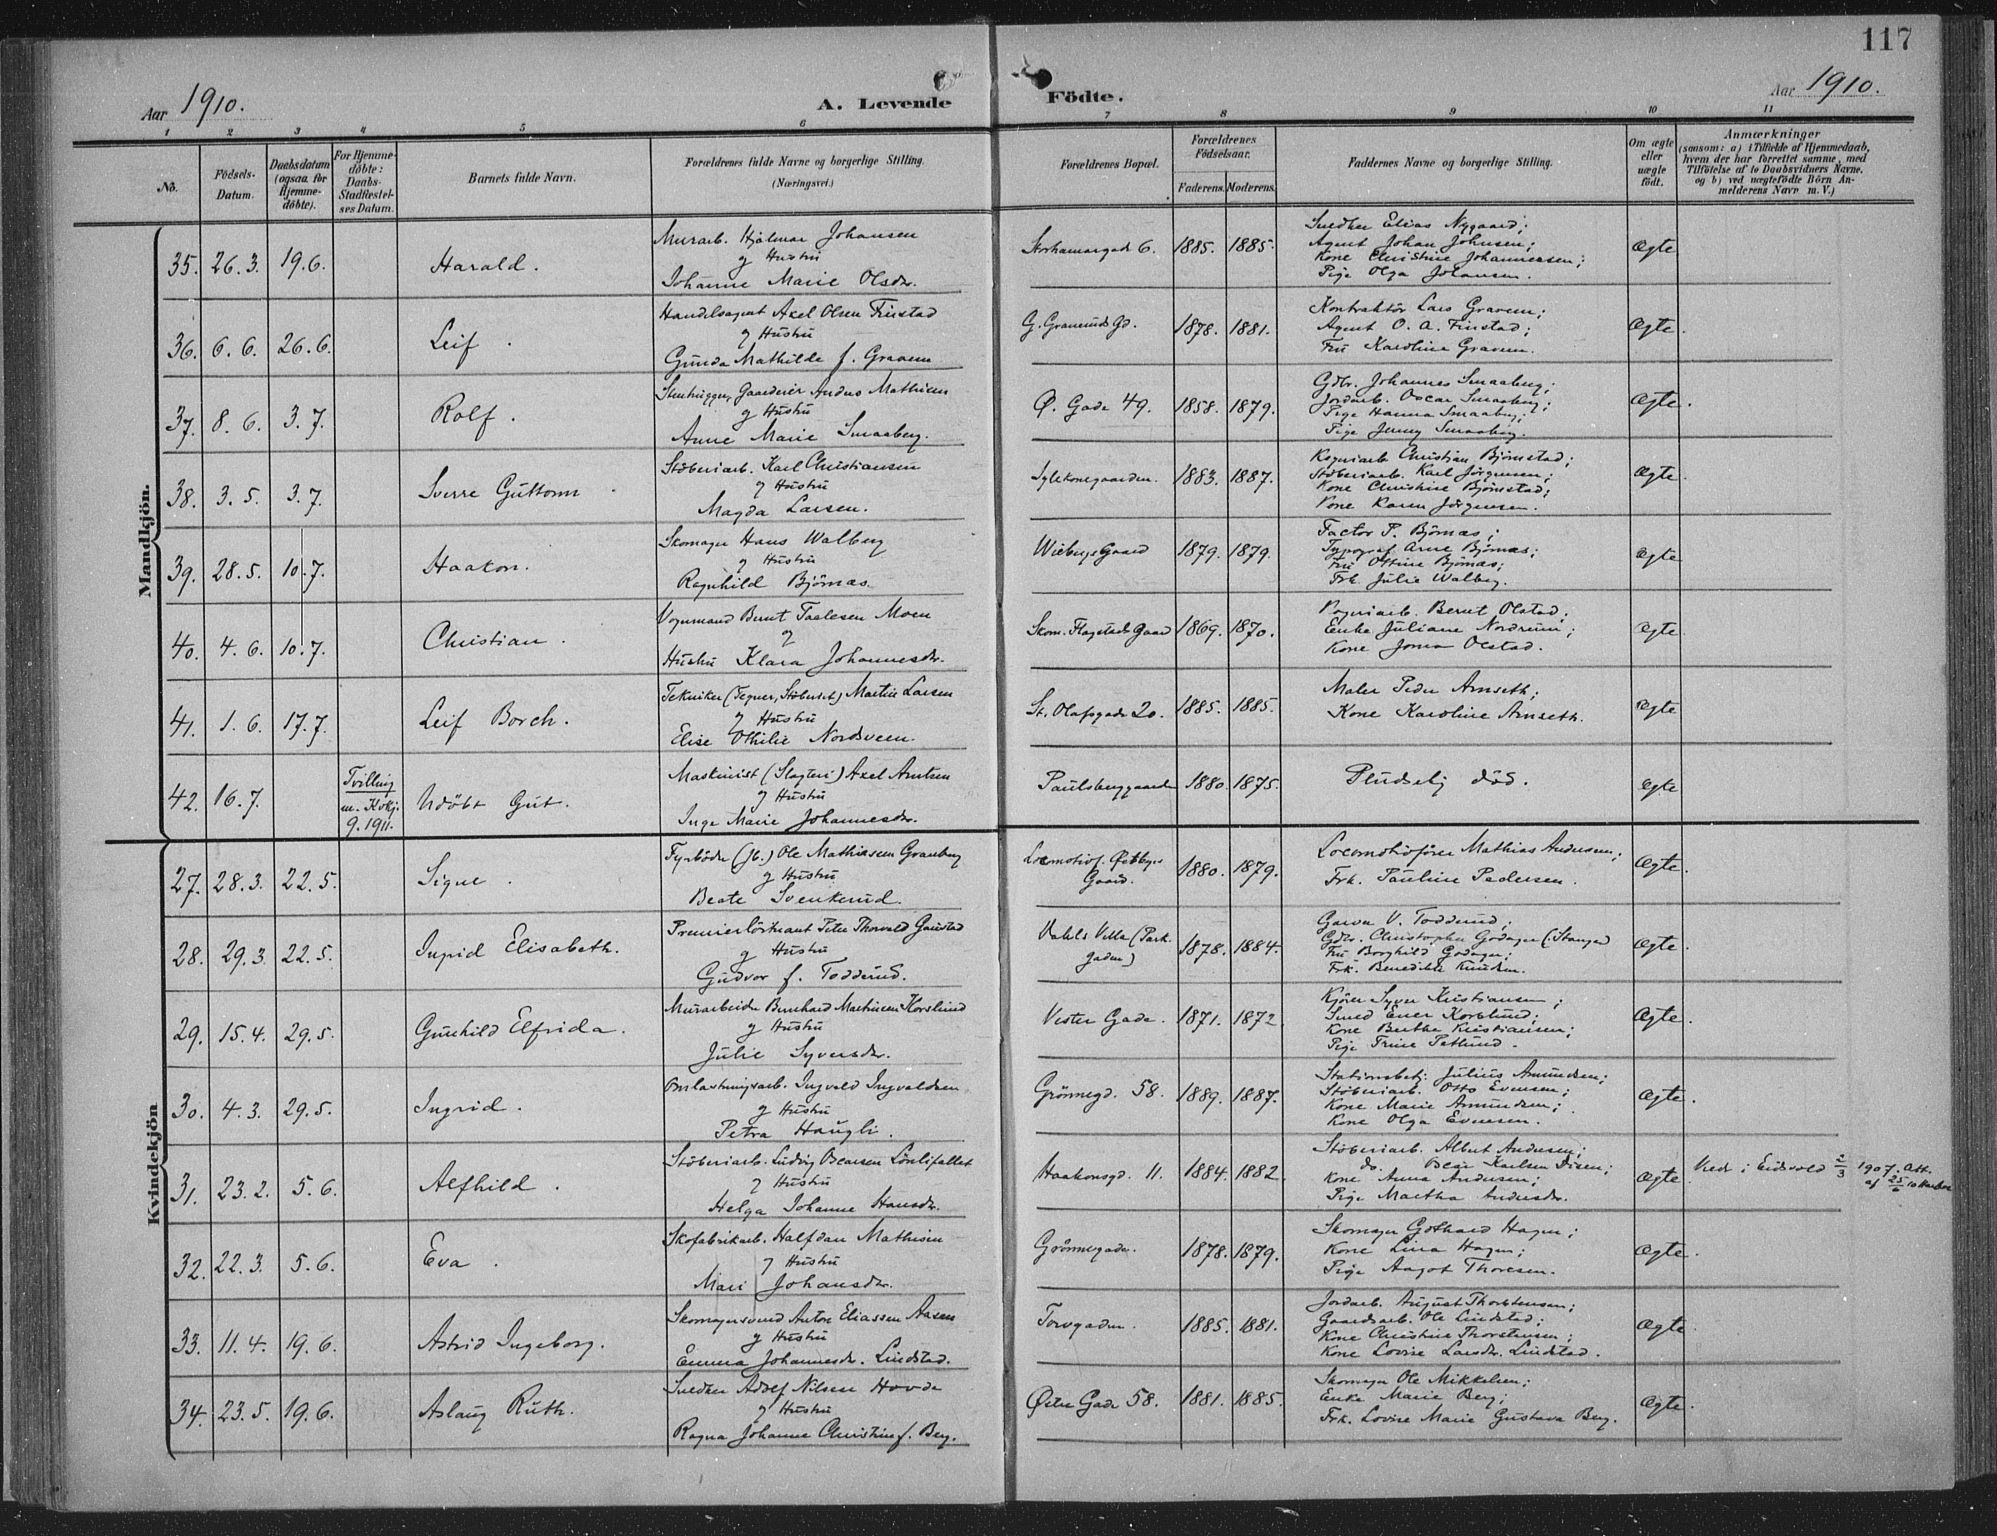 117
Aar 1910.
A. Levende Födte.
Aar 1910.
1 2 3 4 5 6 7 8 9 10 11
No.
Födsels-Datum.
Daabsdatum (ogsaa for Hjemme-döbte).
For Hjemme-döbte: Daabs-Stadfæstel-ses Datum.
Barnets fulde Navn.
Forældrenes fulde Navne og borgerlige Stilling.
(Næringsvei.)
Forældrenes Bopæl.
Forældrenes Födselsaar.
Faderens. Moderens.
Faddernes Navne og borgerlige Stilling.
Om ægte eller uægte födt.
Anmærkninger
(saasom: a) i Tilfælde af Hjemmedaab,
hvem der har forrettet samme, med
Tilföielse af to Daabsvidners Navne,
og b) ved uægtefödte Börn An-
melderens Navn m. V.)
Mandkjön.
35. 26.3. 19.6. Harald.
Murarb. Hjalmar Johansen
og Hustru
Johanne Marie Olsdr.
6. 1885. 1885.
Snedker Elias Nygaard;
Agent Johan Johnsen;
Kone Christine Johannessen;
Pige Olga Johansen.
Ægte
36. 6.6. 26.6. Leif.
Handelsagent Axel Olsen Finstad
og Hustru
Gunda Mathilde f. Gravem
1878. 1881.
Kontraktör Lars Gravem;
Agent O. A. Finstad;
Fru Karoline Gravem.
Ægte.
37. 8.6. 3.7. Rolf.
Stenhugger, Gaardeier Anders Mathisen
og Hustru
Anne Marie Smaaberg.
Ø. Gade 49. 1858. 1879.
Gdbr. Johannes Smaaberg;
Jordarb. Oscar Smaaberg;
Pige Hanna Smaaberg;
Pige Jenny Smaaberg.
Ægte.
38. 3.5. 3.7. Sverre Guttorm.
Stöberiarb. Karl Christiansen
og Hustru
Magda Larsen.
1883. 1887.
Christian Björnstad;
Stöberiarb. Karl Jörgensen;
Kone Christine Björnstad;
Kone Karen Jörgensen.
Ægte
39. 28.5. 10.7. Haakon.
Skomager Hans Walberg
og Hustru
Ragnhild Björnæs.
Wiebergs Gaard 1879. 1879.
Factor P. Björnæs;
Typograf Arne Björnæs;
Fru Ottine Björnæs;
Frk. Julie Walberg.
Ægte
40. 4.6. 10.7. Christian.
Vognmand Bernt Taalesen Moen
og
Hustru Klara Johannesdr.
Skom. Flagstads Gaard 1869. 1870.
Bernt Olstad;
Enke Juliane Nordrum;
Kone Olstad.
Ægte
41. 1.6. 17.7. Leif Borch.
Tekniker (Tegner, Stöberiet) Martin Larsen
og Hustru
Elise Othilie Nordsveen.
St. Olafsgade 20. 1885. 1885.
Maler Peder Arnseth;
Kone Karoline Arnseth.
Ægte
42. 16.7. Tvilling m. Kvkj. 9. 1911. Udöbt Gut.
Maskinist (Slagteri) Axel Arntsen
og Hustru
Inga Marie Johannesdr.
Paulsberggaarden 1880. 1875.
Pludselig död.
Ægte
Kvindekjön
27. 28.3. 22.5. Signe.
Fyrböder (Jb.) Ole Mathiasen Granberg
og Hustru
Beate Svenkerud.
Gaard. 1880. 1879.
Locomotivförer Mathias Andersen;
Frk. Pauline Pedersen.
Ægte.
28. 29.3. 22.5. Ingrid Elisabeth.
Premierlöitnant Peter Thorvald Gaustad
og Hustru
Gudvor f. Todderud.
Dahls Villa (Park gaden) 1878. 1884.
Garver V. Todderud;
Gdbr. Christopher Godager (Stange)
Fru Borghild Godager;
Frk. Benedikte Knudsen.
Ægte.
29. 15.4. 29.5. Gunhild Elfrida.
Murarbeider Bernhard Martinsen Korslund
og Hustru
Julie Syversdr.
Vester Gade. 1871. 1872.
Kjörer Syver Kristiansen;
Smed Korslund;
Kone Berthe Kristiansen;
Pige Trine.
Ægte.
30. 4.3. 29.5. Ingrid.
Omlastningsarb. Ingvald Ingvaldsen
og Hustru
Petra Haugli.
Grönnegd. 58. 1889. 1887.
Stationsbetj. Julius Amundsen;
Stöberiarb. Otto Evensen;
Kone Marie Amundsen;
Kone Olga Evensen.
Ægte.
31. 23.2. 5.6. Alfhild.
Stöberiarb. Ludvig Oscarsen Lönlifallet
og Hustru
Helga Johanne Hansdr.
Haakonsgd. 11. 1884. 1882.
Stöberiarb. Albert Andersen;
do. Oscar Karlsen Disen;
Kone Anna Andersen;
Pige Martha Andersdr.
Ægte.
Vied i Eidsvold 2/3 1907. Att. af 25/6 10
32. 22.3. 5.6. Eva.
Skofabrikarb. Halfdan Mathisen
og Hustru
Mari Johansdr.
Grönnegaden. 1878. 1879.
Skomager Gothard Hagen;
Kone Lina Hagen;
Pige Aagot Thoresen.
Ægte.
33. 11.4. 19.6. Astrid Ingeborg.
Skomagersvend Anton Eliassen Aasen
og Hustru
Emma Johannesdr. Lindstad.
Torvgaden. 1885. 1881.
Jordarb. August Thorstensen;
Gaardsarb. Ole Lindstad;
Kone Christine Thorstensen;
Kone Lovise Larsdr. Lindstad.
Ægte.
34. 23.5. 19.6. Aslaug Ruth.
Snedker Adolf Nilsen Hovde
og Hustru
Ragna Johanne Christine f. Berg.
Østre Gade 58. 1881. 1885.
Skomager Ole Mikkelsen;
Enke Marie Berg;
Frk. Lovise Marie Gustava Berg.
Ægte.